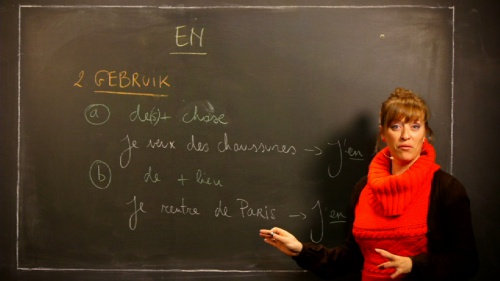 EN
2 GEBRUIK
a de(s) + chose
Je veux des chaussures → j'en
b de + lieu
Je rentre de Paris → j'en